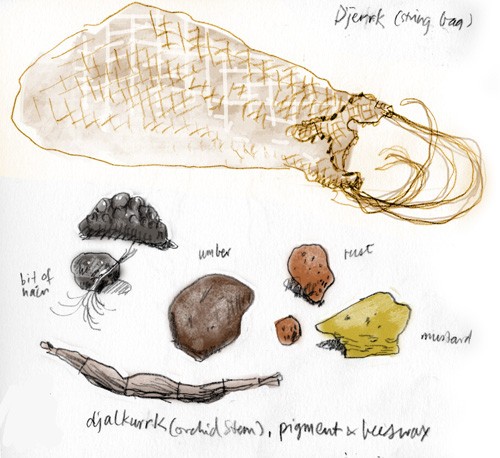 Djerrk (string bag)
umber
rust
bit of
hair
mustard
djalkurrk (orchid stem), pigment & beeswax